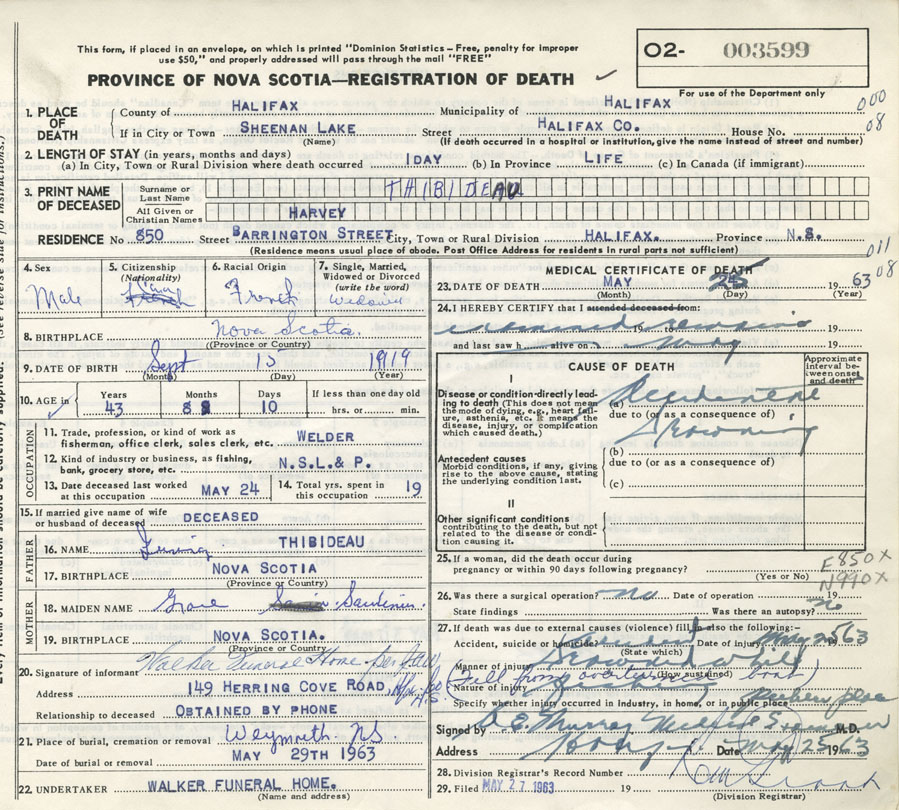 This form, if placed in an envelope, on which is printed "Dominion Statistics – Free, penalty for improper
use $50," and properly addressed will pass through the mail "FREE"
PROVINCE OF NOVA SCOTIA—REGISTRATION OF DEATH ✓
O2- 003599
For use of the Department only
000
08
1. PLACE OF DEATH
County of HALIFAX Municipality of HALIFAX
If in City or Town SHEENAN LAKE Street HALIFAX CO. House No.
(Name) (If death occurred in a hospital or institution, give the name instead of street and number)
2. LENGTH OF STAY (in years, months and days)
(a) In City, Town or Rural Division where death occurred 1DAY (b) In Province LIFE (c) In Canada (if immigrant)
3. PRINT NAME OF DECEASED
Surname or Last Name THIBIDEAU
All Given or Christian Names HARVEY
RESIDENCE No 850 Street BARRINGTON STREET City, Town or Rural Division HALIFAX. Province N.S.
(Residence means usual place of abode. Post Office Address for residents in rural parts not sufficient)
011
08
4. Sex
Male
5. Citizenship (Nationality)
French
6. Racial Origin
French
7. Single, Married, Widowed or Divorced (write the word)
Widowed
8. BIRTHPLACE Nova Scotia.
(Province or Country)
9. DATE OF BIRTH Sept 15 1919
(Month) (Day) (Year)
10. AGE in Years Months Days If less than one day old
✓ 43 8 10 hrs. or min.
OCCUPATION
11. Trade, profession, or kind of work as fisherman, office clerk, sales clerk, etc. WELDER
12. Kind of industry or business, as fishing, bank, grocery store, etc. N.S.L.& P.
13. Date deceased last worked at this occupation MAY 24
14. Total yrs. spent in this occupation 19
15. If married give name of wife or husband of deceased DECEASED
FATHER
16. NAME THIBIDEAU
17. BIRTHPLACE NOVA SCOTIA
(Province or Country)
MOTHER
18. MAIDEN NAME
19. BIRTHPLACE NOVA SCOTIA.
(Province or Country)
20. Signature of informant Walker Funeral Home per
Address 149 HERRING COVE ROAD,
Relationship to deceased OBTAINED BY PHONE
21. Place of burial, cremation or removal Weymouth NS.
Date of burial or removal MAY 29TH 1963
22. UNDERTAKER WALKER FUNERAL HOME.
(Name and address)
MEDICAL CERTIFICATE OF DEATH
23. DATE OF DEATH MAY 25 19 63
(Month) (Day) (Year)
24. I HEREBY CERTIFY that I attended deceased from:
19 to 19
and last saw h alive on 19
CAUSE OF DEATH
Approximate interval between onset and death
I
Disease or condition directly leading to death (This does not mean the mode of dying, e.g., heart failure, asthenia, etc. It means the disease, injury, or complication which caused death.)
(a) Accidental
due to (or as a consequence of)
Drowning
Antecedent causes
Morbid conditions, if any, giving rise to the above cause, stating the underlying condition last.
(b)
due to (or as a consequence of)
(c)
II
Other significant conditions contributing to the death, but not related to the disease or condition causing it.
25. If a woman, did the death occur during pregnancy or within 90 days following pregnancy?
(Yes or No)
E850X
N990X
26. Was there a surgical operation? No Date of operation 19
State findings Was there an autopsy? No
27. If death was due to external causes (violence) fill in also the following:-
Accident, suicide or homicide? Accident Date of injury May 25 63
(State which)
Manner of injury Drowned while
(How sustained)
(Fell from overturned boat)
Nature of injury
Specify whether injury occurred in industry, in home, or in public place
Signed by A E Murray M.D.
Address Date May 25 1963
28. Division Registrar's Record Number
29. Filed MAY 27 1963 19
(Division Registrar)